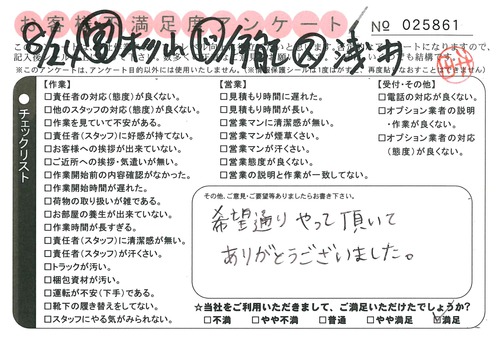 お客様不満足度アンケート
№ 025861
8/24
※このアンケートは、アンケート目的以外には使用いたしません。
チェックリスト
【作業】
□責任者の対応(態度)が良くない。
□他のスタッフの対応(態度)が良くない。
□作業を見ていて不安がある。
□責任者(スタッフ)に好感が持てない。
□お客様への挨拶が出来ていない。
□ご近所への挨拶・気遣いが無い。
□作業開始前の内容確認がなかった。
□作業開始時間が遅れた。
□荷物の取り扱いが雑である。
□お部屋の養生が出来ていない。
□作業時間が長すぎる。
□責任者(スタッフ)に清潔感が無い。
□責任者(スタッフ)が汗くさい。
□トラックが汚い。
□梱包資材が汚い。
□運転が不安(下手)である。
□靴下の履き替えをしてない。
□スタッフにやる気がみられない。
【営業】
□見積もり時間に遅れた。
□見積もり時間が長い。
□営業マンに清潔感が無い。
□営業マンが煙草くさい。
□営業マンが汗くさい。
□営業態度が良くない。
□営業の説明と作業が一致してない。
【受付・その他】
□電話の対応が良くない。
□オプション業者の説明
・作業が良くない。
□オプション業者の対応
(態度)が良くない。
その他、ご意見・ご要望等ありましたらお書き下さい。
希望通り やって頂いて
ありがとうございました。
☆当社をご利用いただきまして、ご満足いただけたでしょうか?
□不満 □やや不満 □普通 □やや満足 ☑満足